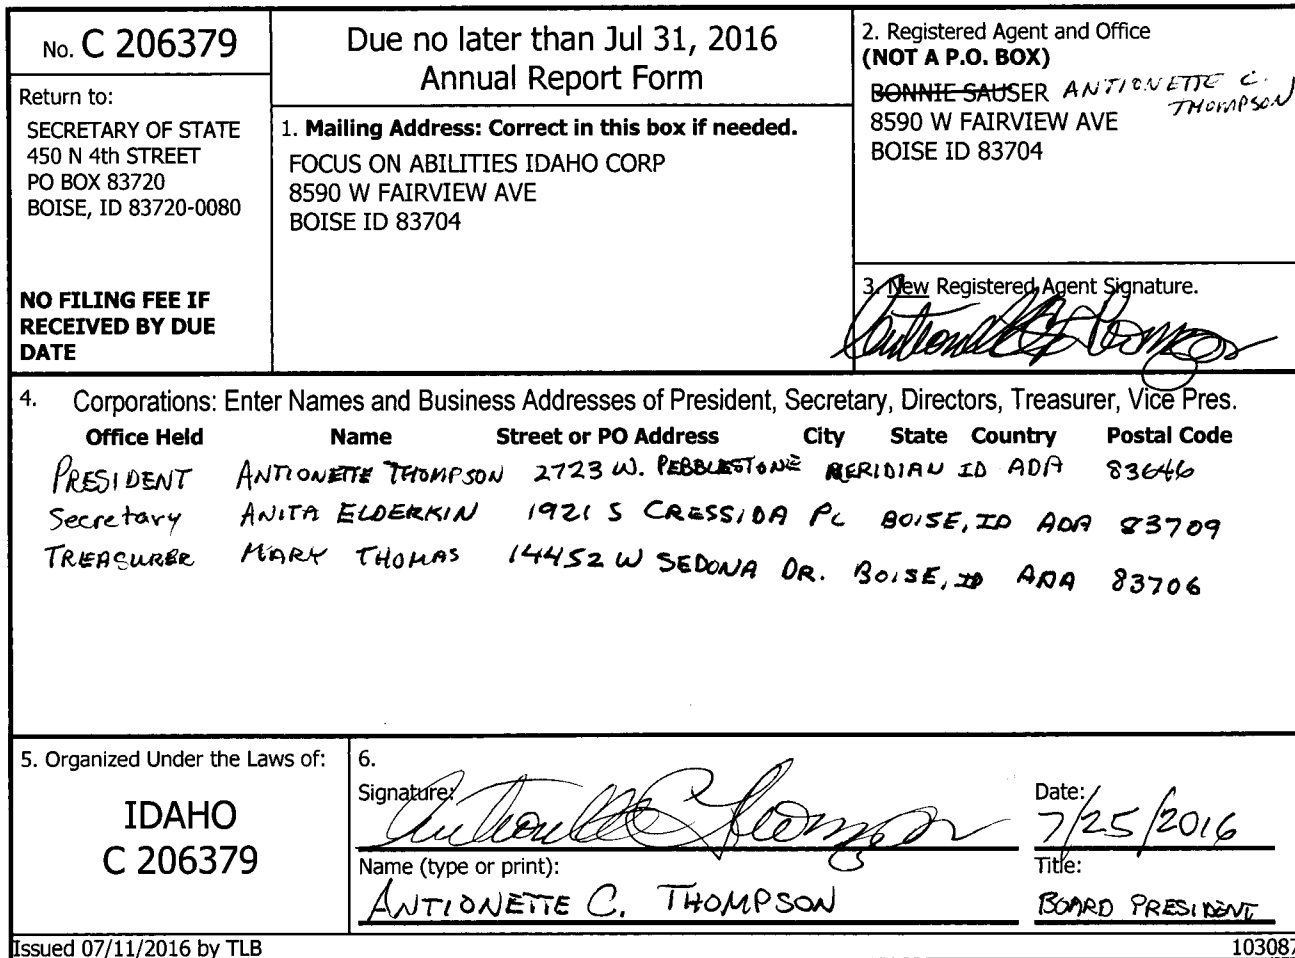 No. C 206379
Return to:
SECRETARY OF STATE
450 N 4th STREET
PO BOX 83720
BOISE, ID 83720-0080
NO FILING FEE IF
RECEIVED BY DUE
DATE
Due no later than Jul 31, 2016
Annual Report Form
1. Mailing Address: Correct in this box if needed.
FOCUS ON ABILITIES IDAHO CORP
8590 W FAIRVIEW AVE
BOISE ID 83704
2. Registered Agent and Office
(NOT A P.O. BOX)
BONNIE SAUSER ANTIONETTE C.
THOMPSON
8590 W FAIRVIEW AVE
BOISE ID 83704
3. New Registered Agent Signature.
Antionette C Thompson
4. Corporations: Enter Names and Business Addresses of President, Secretary, Directors, Treasurer, Vice Pres.
Office Held Name Street or PO Address City State Country Postal Code
PRESIDENT ANTIONETTE THOMPSON 2723 W. PEBBLESTONE MERIDIAN ID ADA 83646
Secretary ANITA ELDERKIN 1921 S CRESSIDA PL BOISE, ID ADA 83709
TREASURER MARY THOMAS 14452 W SEDONA DR. BOISE, ID ADA 83706
5. Organized Under the Laws of:
IDAHO
C 206379
6.
Signature: Antionette C Thompson
Date: 7/25/2016
Name (type or print):
ANTIONETTE C. THOMPSON
Title:
BOARD PRESIDENT
Issued 07/11/2016 by TLB
103087